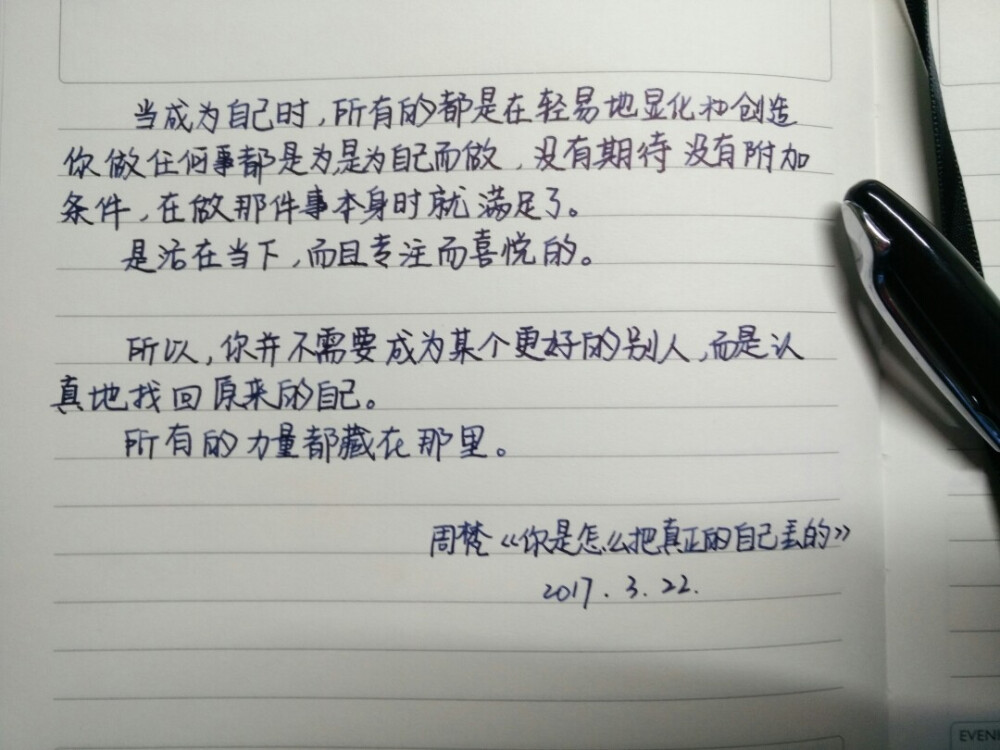 当成为自己时，所有的都是在轻易地显化和创造
你做任何事都是为，是为自己而做，没有期待 没有附加
条件，在做那件事本身时就满足了。
是活在当下，而且专注而喜悦的。
所以，你并不需要成为某个更好的别人，而是认
真地找回原来的自己。
所有的力量都藏在那里。
周梵《你是怎么把真正的自己丢的》
2017.3.22.
EVEN